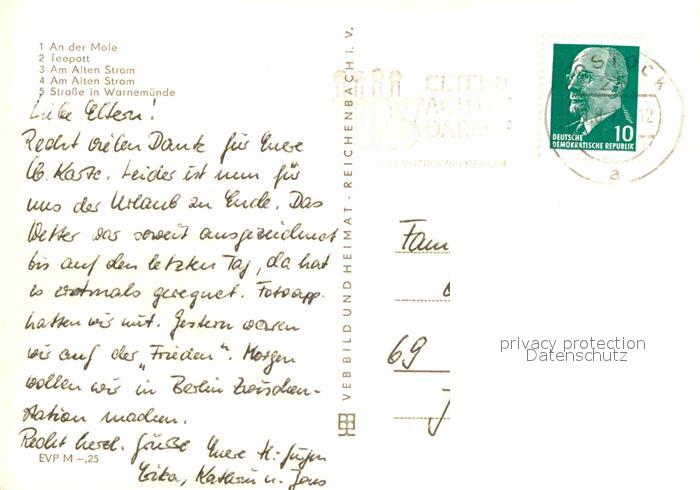 1 An der Mole
2 Teepott
3 Am Alten Strom
4 Am Alten Strom
5 Straße in Warnemünde
Liebe Eltern!
Recht vielen Dank für Eure
lb. Karte. Leider ist nun für
uns der Urlaub zu Ende. Das
Wetter war soweit ausgezeichnet
bis auf den letzten Tag, da hat
es erstmals geregnet. Fotoapp.
hatten wir mit. Gestern waren
wir auf der „Frieden". Morgen
wollen wir in Berlin Zwischen-
station machen.
Recht herzl. Grüße Eure H.-Jürgen
Erika, Kathrin u. Jens
EVP M –,25
VEB BILD UND HEIMAT · REICHENBACH i. V.
ELTERN
ACHTET
DARAUF
ROSTOCK
a
10
DEUTSCHE
DEMOKRATISCHE REPUBLIK
Fam
69
J
privacy protection
Datenschutz